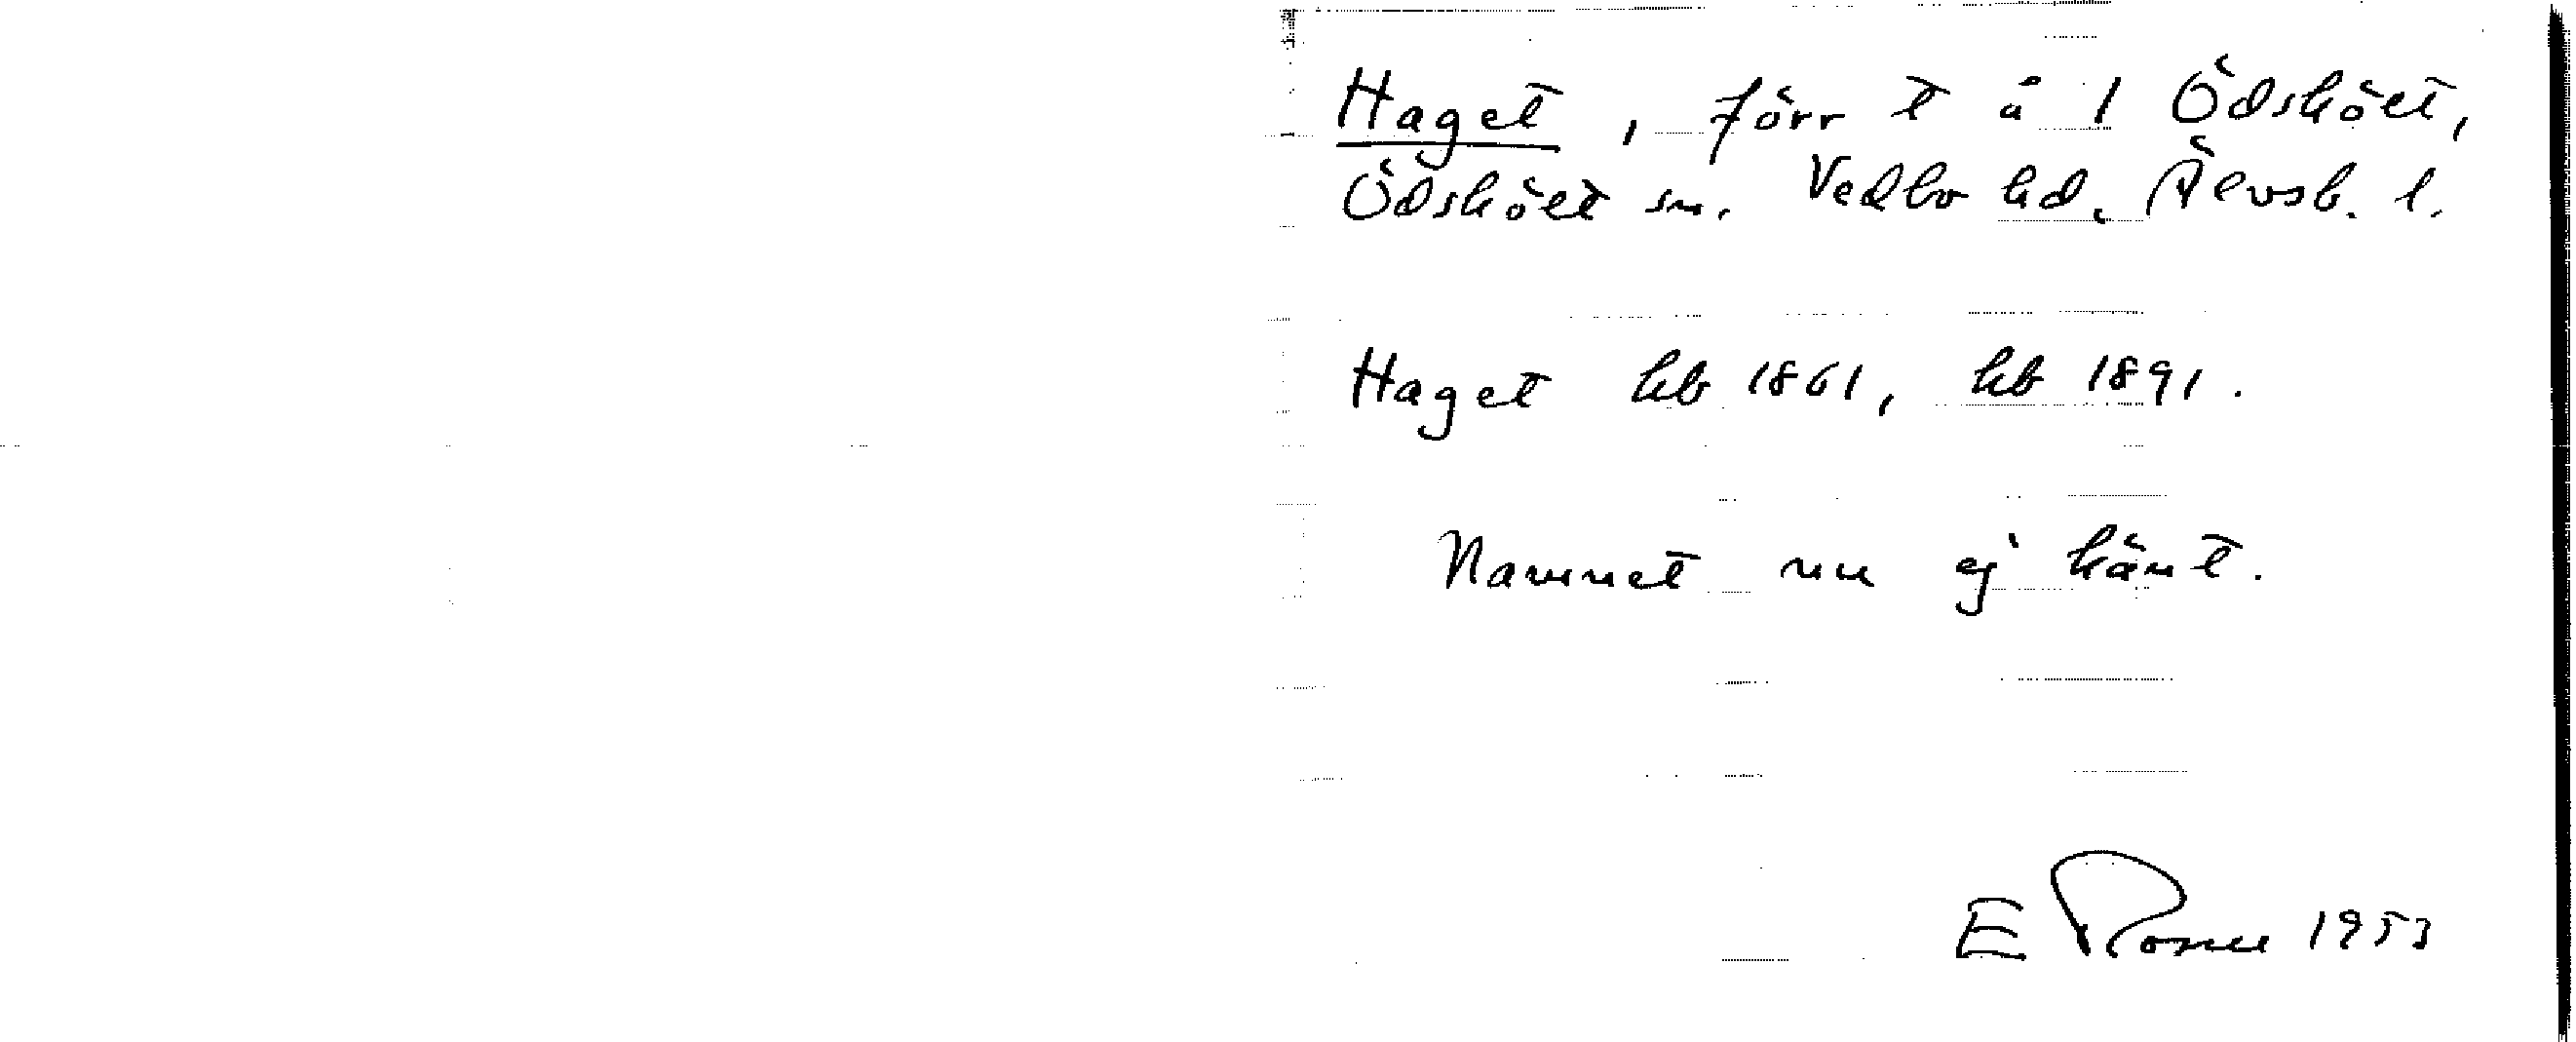 Haget, förr t å 1 Ödskölt,
Ödskölt sn. Vedbo hd. Älvsb. l.
Haget hb 1861, hb 1891.
Namnet nu ej känt.
E Rosell 1953